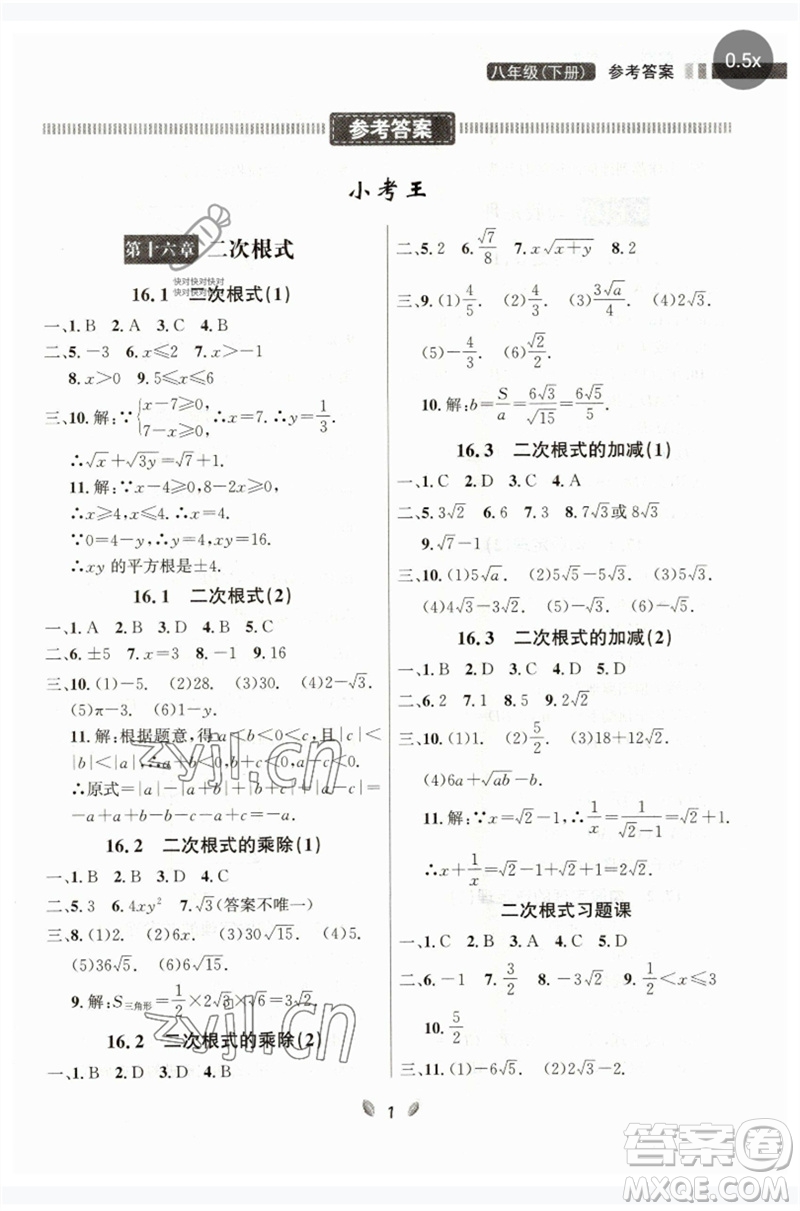 0.5x
八年级(下册) 参考答案
参考答案
小考王
第十六章 二次根式
快对快对快对
快对快对快对
16.1 二次根式(1)
一、1.B 2.A 3.C 4.B
二、5.-3 6.x≤2 7.x>-1
8.x>0 9.5≤x≤6
三、10.解:∵{x-7≥0, 7-x≥0, ∴x=7. ∴y=1/3.
∴√x+√3y=√7+1.
11.解:∵x-4≥0,8-2x≥0,
∴x≥4,x≤4. ∴x=4.
∵0=4-y,∴y=4,xy=16.
∴xy 的平方根是±4.
16.1 二次根式(2)
一、1.A 2.B 3.D 4.B 5.C
二、6.±5 7.x=3 8.-1 9.16
三、10.(1)-5. (2)28. (3)30. (4)-3.
(5)π-3. (6)1-y.
11.解:根据题意,得a<b<0<c,且|c|<
|b|<|a|,∴a+b<0,b+c<0.
∴原式=|a|-|a+b|+|c|+|b+c|=
-a+a+b+c-b-c=0.
16.2 二次根式的乘除(1)
一、1.B 2.B 3.D 4.C
二、5.3 6.4xy² 7.√3(答案不唯一)
三、8.(1)2. (2)6x. (3)30√15. (4)5.
(5)36√5. (6)2√15.
9.解:S三角形=1/2×2√3×√6=3√2.
16.2 二次根式的乘除(2)
一、1.B 2.D 3.D 4.B
二、5.2 6.√7/8 7.x√x+y 8.2
三、9.(1)4/5. (2)4/3. (3)3√a/4. (4)2√3.
(5)-4/3. (6)√2/2.
10.解:b=S/a=6√3/√15=6√5/5.
16.3 二次根式的加减(1)
一、1.C 2.B 3.C 4.A
二、5.3√2 6.6 7.3 8.7√3或8√3
9.√7-1
三、10.(1)5√a. (2)5√5-5√3. (3)√2.
(4)4√3-3√2. (5)0. (6)2√3.
16.3 二次根式的加减(2)
一、1.B 2.D 3.D 4.D 5.D
二、6.2 7.1 8.5 9.2√2
三、10.(1)1. (2)5/2. (3)18+12√2.
(4)6a+√ab-b.
11.解:∵x=√2-1,∴1/x=1/√2-1=√2+1.
∴x+1/x=√2-1+√2+1=2√2.
二次根式习题课
一、1.C 2.B 3.A 4.C 5.D
二、6.-1 7.3/2 8.√3 9.1/2<x≤3
10.5/2
三、11.(1)-6√5. (2)-1. (3)6-√3.
1
zyjl.cn
zyjl.cn
答案卷
MXQE.COM